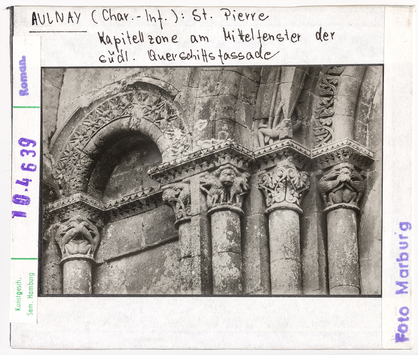 AULNAY (Char.-Inf.): St. Pierre
Kapitellzone am Mittelfenster der
südl. Querschiffsfassade
Roman.
10.4639
Kunstgesch.
Sem. Hamburg
Foto Marburg